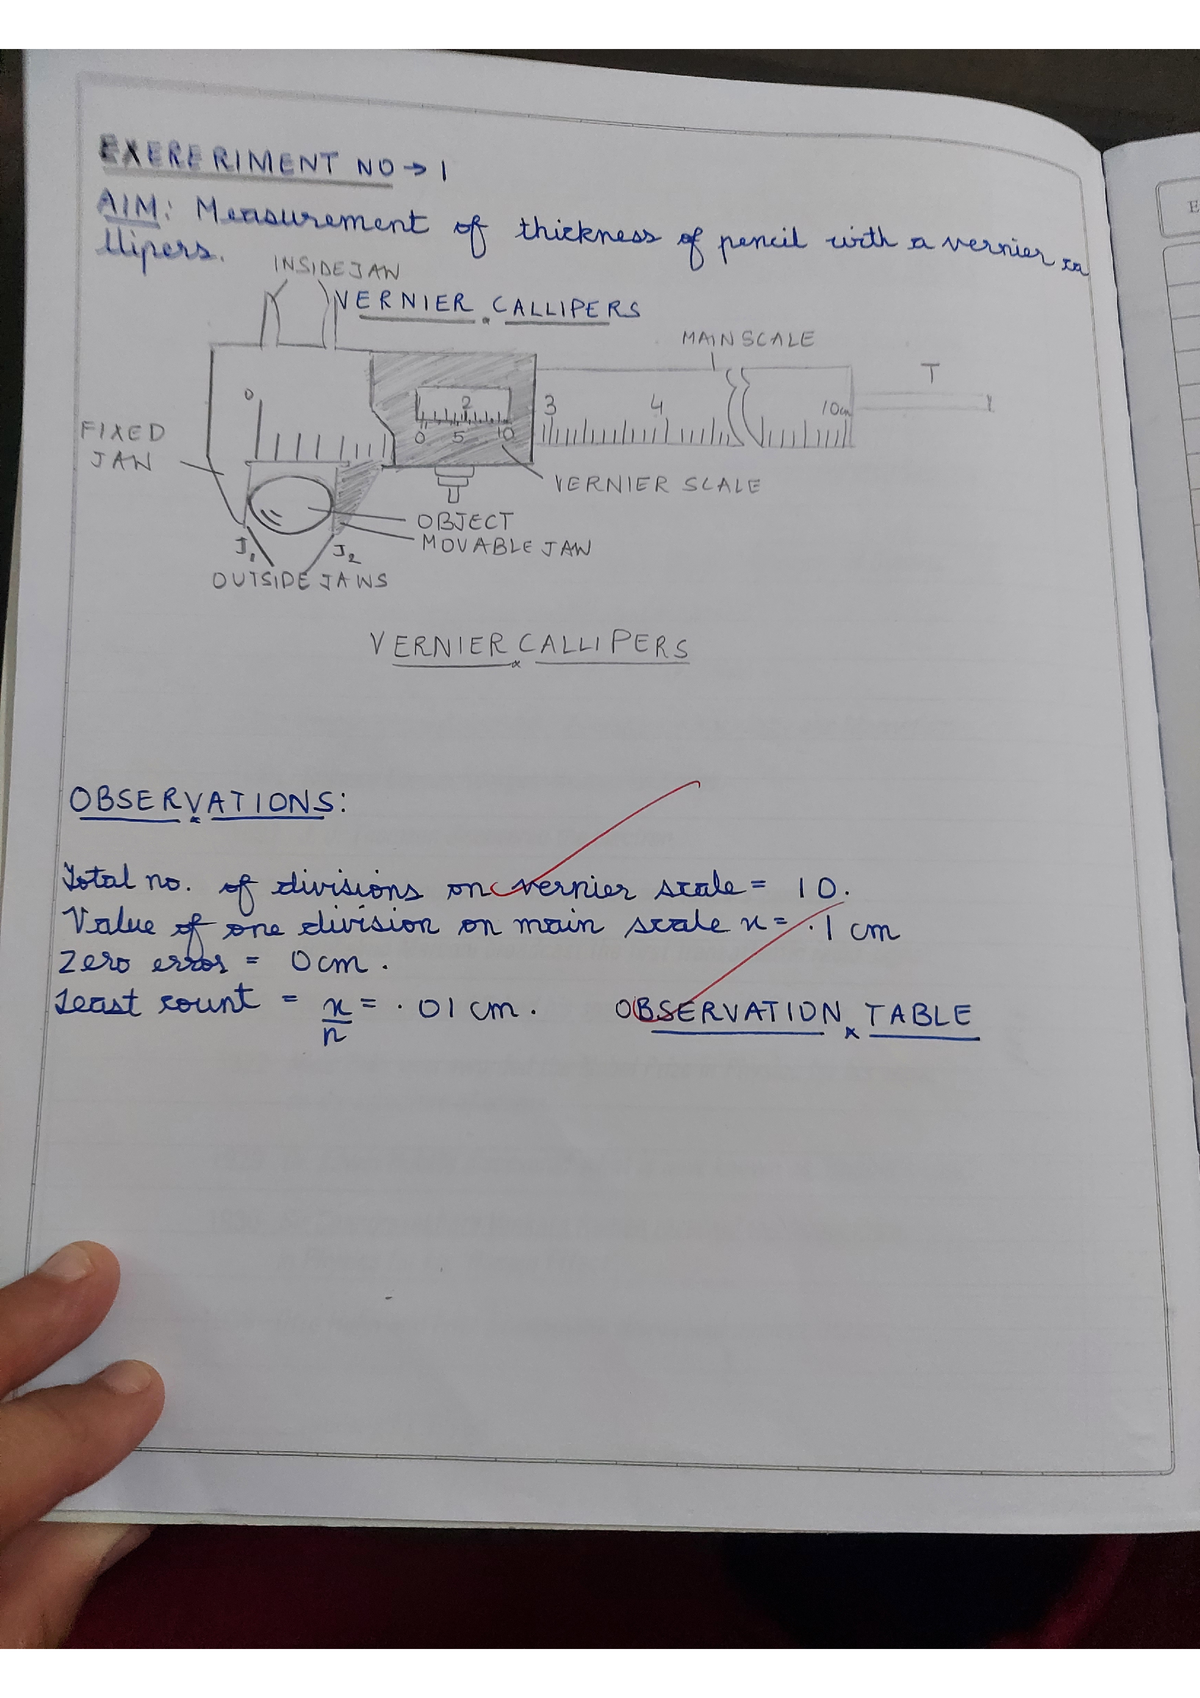 EXERERIMENT NO → 1
AIM: Measurement of thickness of pencil with a vernier ca
llipers.
INSIDE JAW
VERNIER CALLIPERS
MAIN SCALE
T
0
2
3
4
10cm
0 5 10
FIXED
JAW
VERNIER SCALE
OBJECT
MOVABLE JAW
J₁ J₂
OUTSIDE JAWS
VERNIER CALLIPERS
OBSERVATIONS:
Total no. of divisions on vernier scale = 10.
Value of one division on main scale x = .1 cm
Zero error = 0 cm.
Least count = x/n = .01 cm. OBSERVATION TABLE